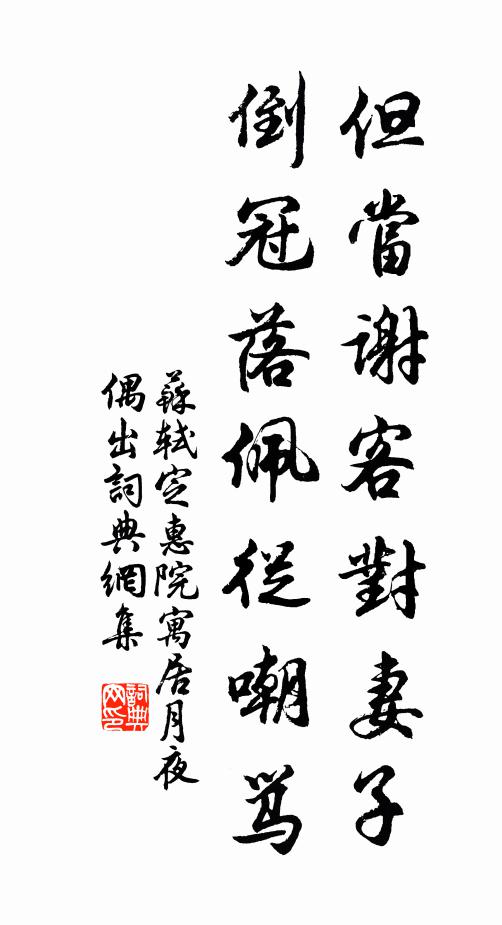 但當謝客對妻子
倒冠落佩從嘲骂
蘇軾定惠院寓居月夜
偶出詞典網集
詞典网印